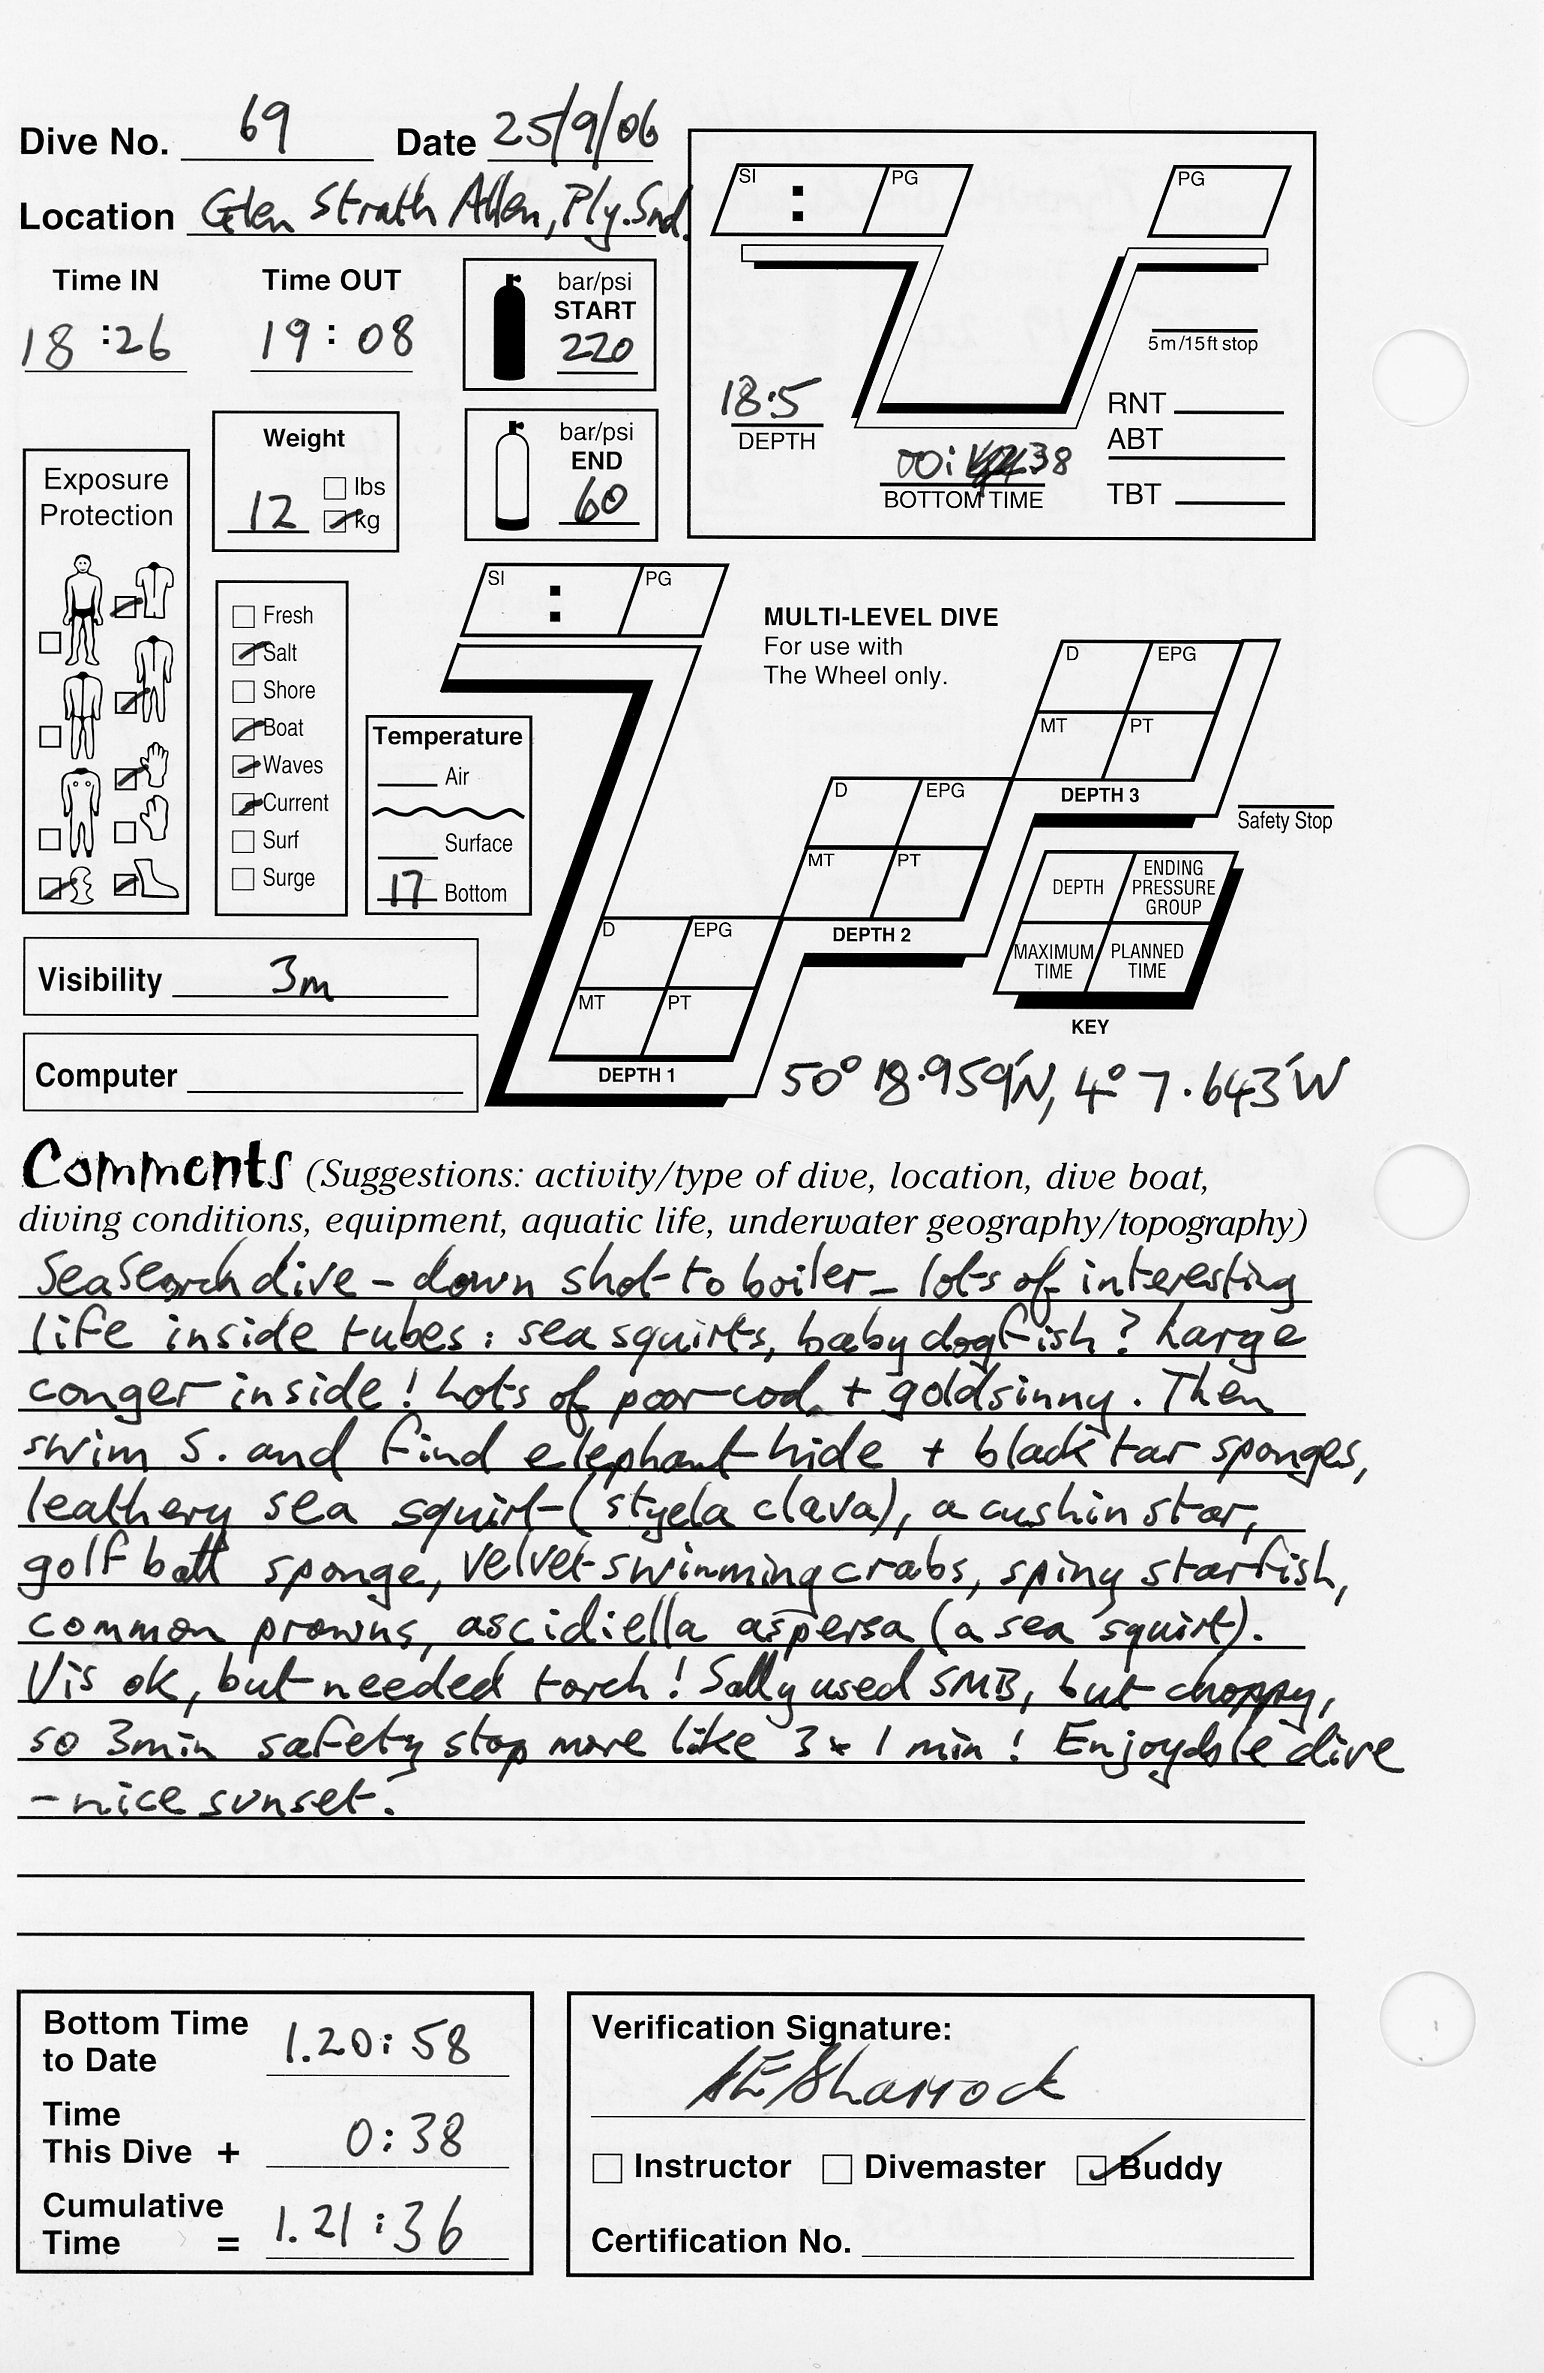 Dive No. 69 Date 25/9/06
Location Glen Strath Allen, Ply. Snd.
Time IN Time OUT
18:26 19:08
bar/psi
START
220
bar/psi
END
60
SI : PG
PG
5m/15ft stop
18.5
DEPTH
00: 38
BOTTOM TIME
RNT
ABT
TBT
Weight
lbs
12 kg
Exposure
Protection
Fresh
Salt
Shore
Boat
Waves
Current
Surf
Surge
Temperature
Air
Surface
17 Bottom
Visibility 3m
Computer
SI : PG
MULTI-LEVEL DIVE
For use with
The Wheel only.
D EPG
MT PT
DEPTH 3
D EPG
MT PT
DEPTH 2
D EPG
MT PT
DEPTH 1
Safety Stop
DEPTH ENDING PRESSURE GROUP
MAXIMUM TIME PLANNED TIME
KEY
50° 18.959'N, 4° 7.643'W
Comments (Suggestions: activity/type of dive, location, dive boat,
diving conditions, equipment, aquatic life, underwater geography/topography)
SeaSearch dive - down shot to boiler - lots of interesting
life inside tubes: sea squirts, baby dogfish? Large
conger inside! Lots of poor-cod + goldsinny. Then
swim S. and find elephant hide + black tar sponges,
leathery sea squirt (styela clava), a cushin star,
golf ball sponge, velvet swimming crabs, spiny starfish,
common prawns, ascidiella aspersa (a sea squirt).
Vis ok, but needed torch! Sally used SMB, but choppy,
so 3min safety stop more like 3 x 1 min! Enjoyable dive
- nice sunset.
Bottom Time
to Date 1.20:58
Time
This Dive + 0:38
Cumulative
Time = 1.21:36
Verification Signature:
Sharrock
Instructor Divemaster Buddy
Certification No.